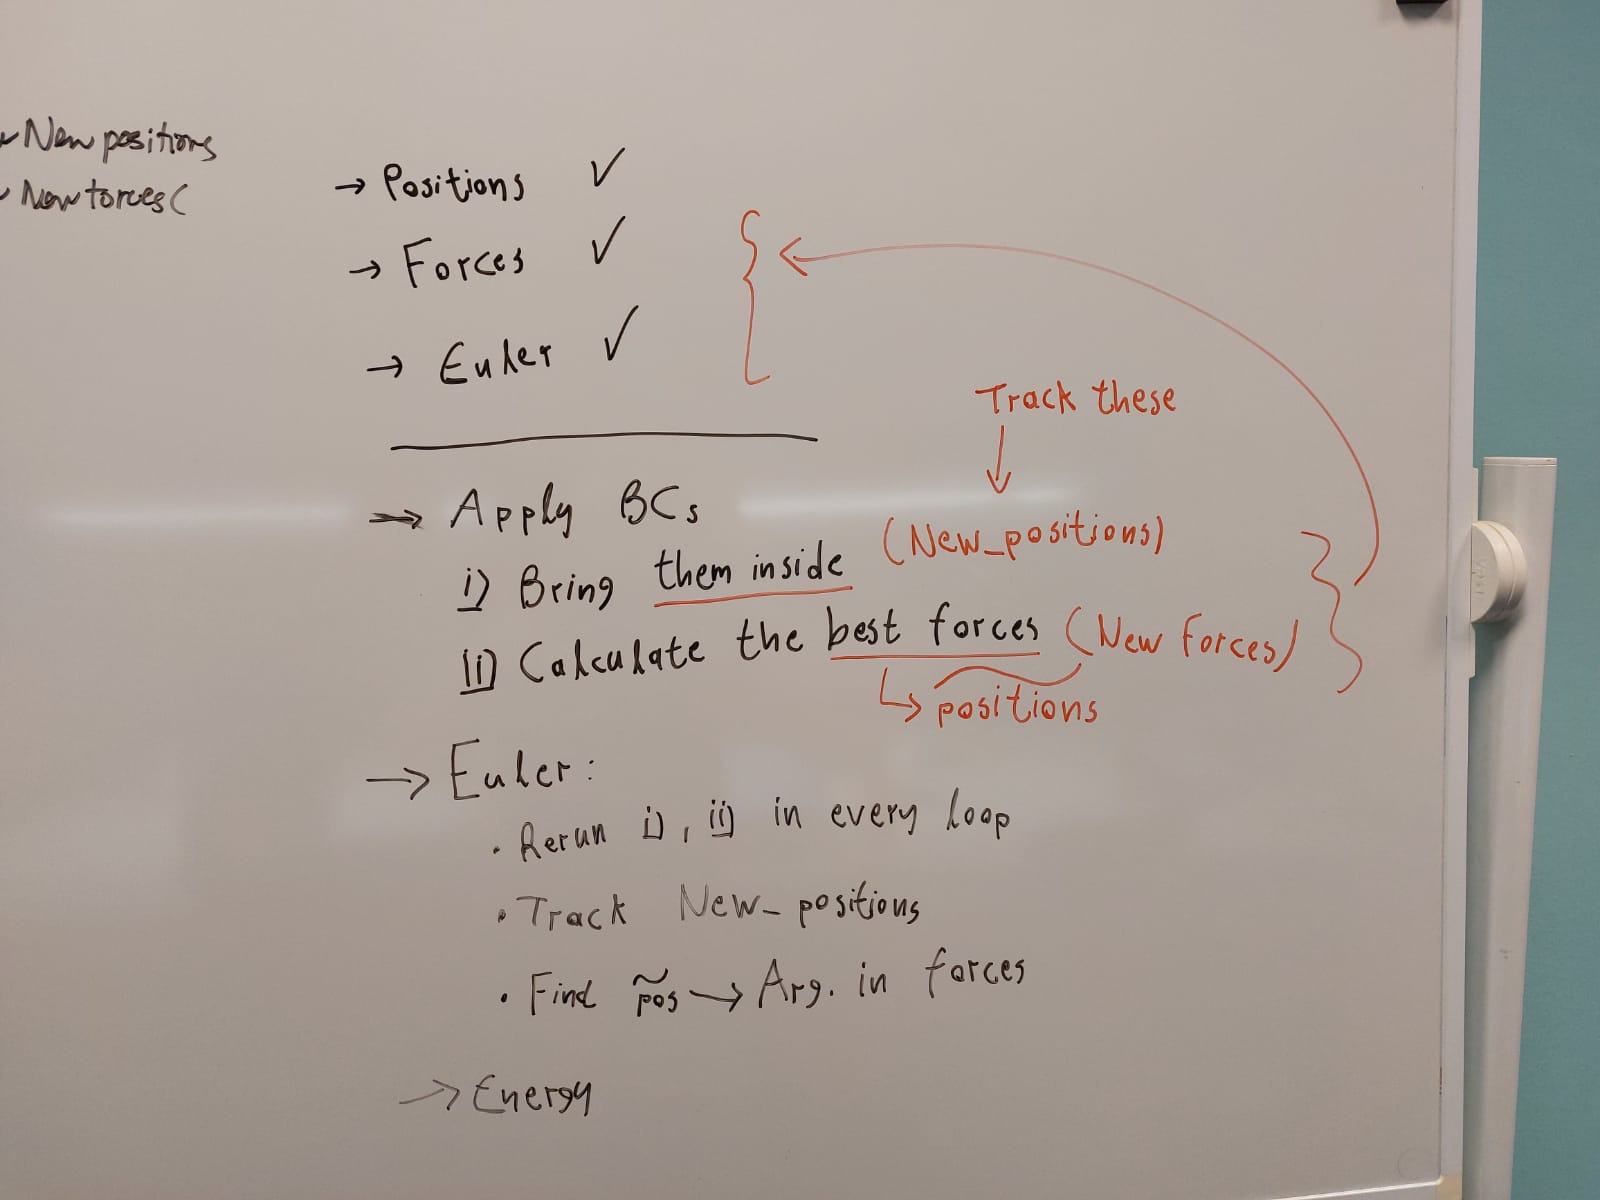 New positions
New forces(
→ Positions ✓
→ Forces ✓
→ Euler ✓
Track these
→ Apply BCs
i) Bring them inside (New_positions)
ii) Calculate the best forces (New Forces)
↳ positions
→ Euler:
· Rerun i), ii) in every loop
· Track New_positions
· Find p̃os → Arg. in forces
→ Energy